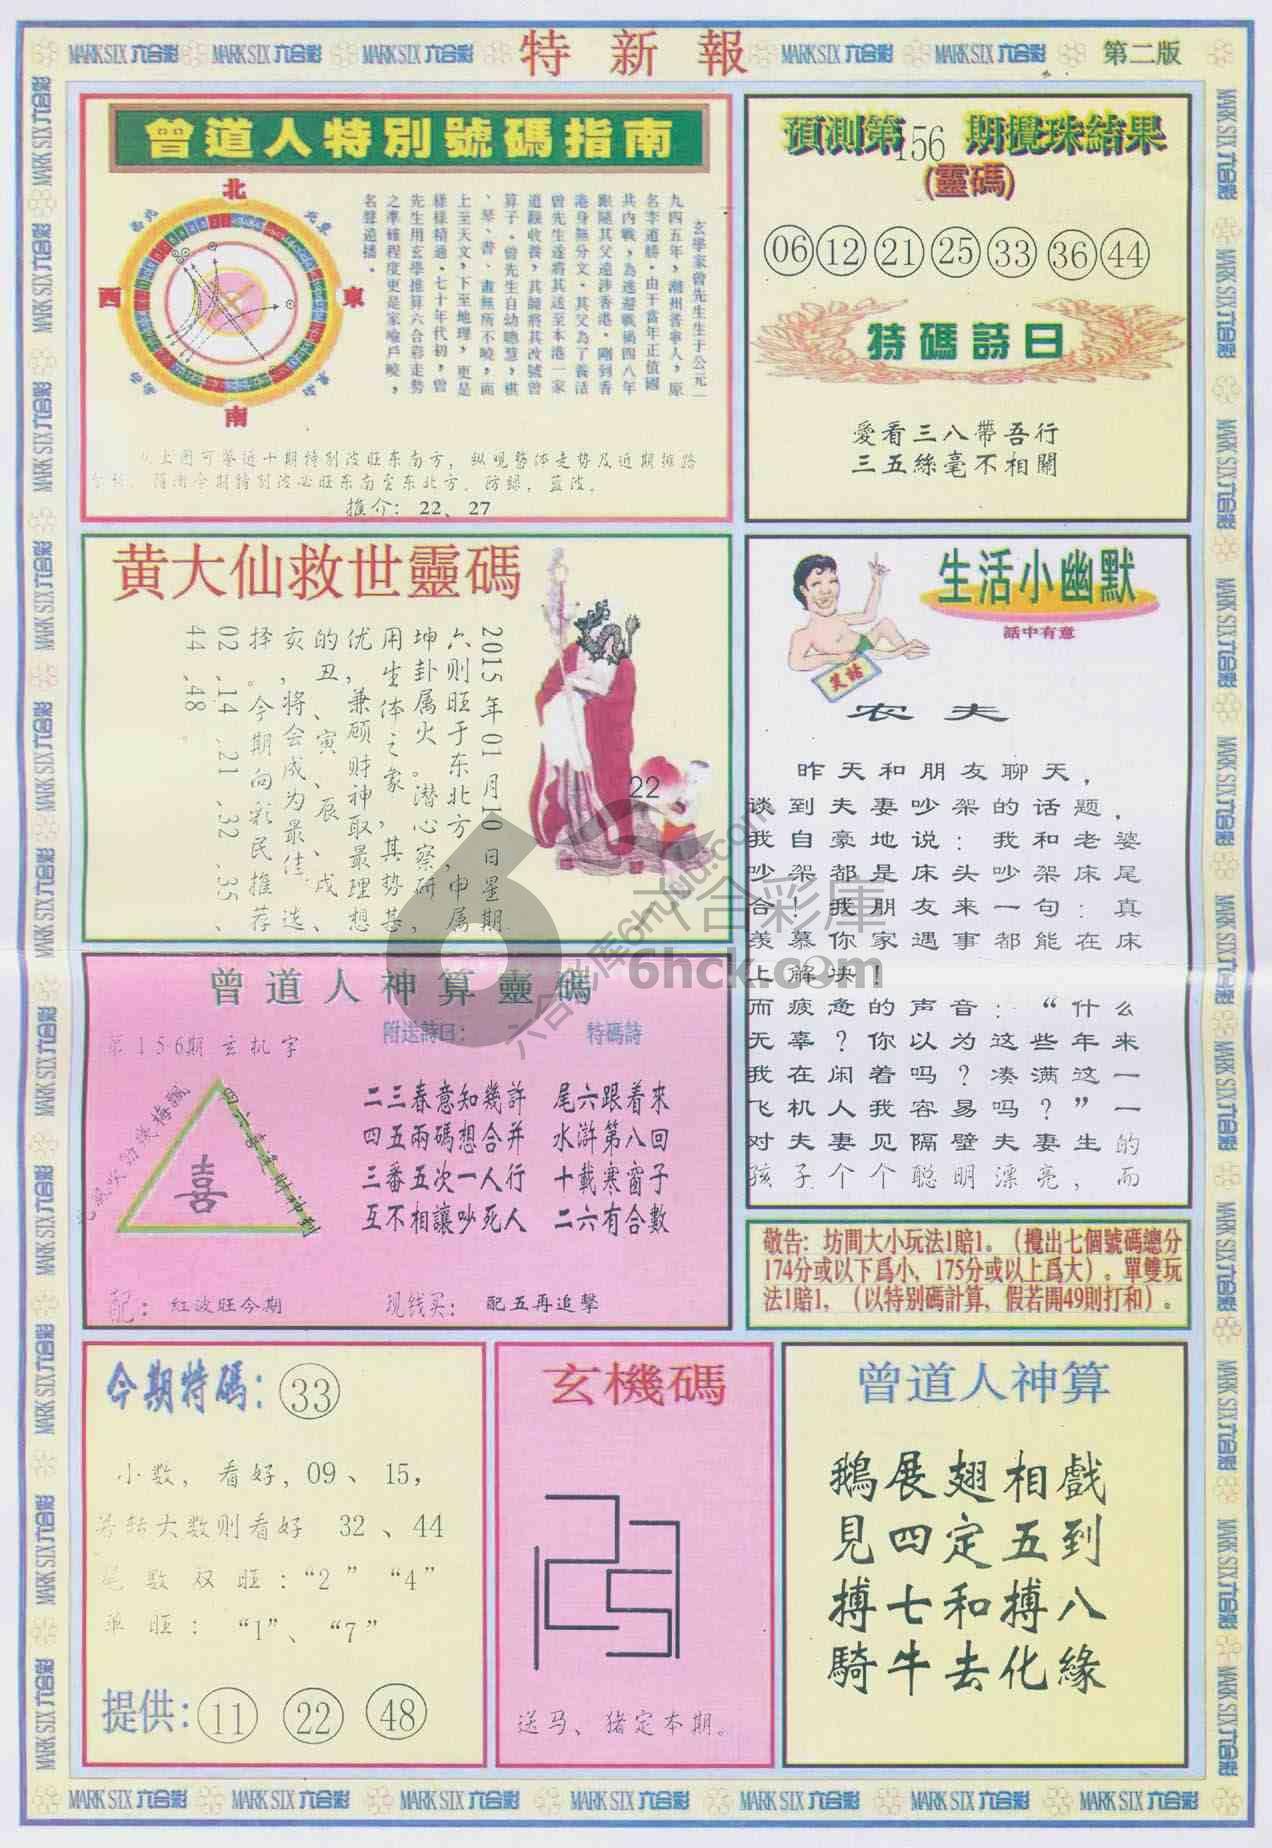 MARK SIX 六合彩 MARK SIX 六合彩 MARK SIX 六合彩 特新報 MARK SIX 六合彩 MARK SIX 六合彩 第二版
曾道人特別號碼指南
北
西
東
南
玄學家曾先生生于公元一
九四五年,潮州普寧人,原
名李道勝·由于當年正值國
共內戰,為逃避戰禍四八年
跟隨其父遠涉香港·剛到香
港身無分文·其父為了養活
曾先生遂將其送至本港一家
道觀收養,其師將其改號曾
算子·曾先生自幼聰慧,棋
、琴、書、畫無所不曉,而
上至天文,下至地理,更是
樣樣精通·七十年代初,曾
先生用玄學推算六合彩走勢
之準確程度更是家喻戶曉,
名聲遠播。
以上图可鉴近十期特别波旺东南方,纵观整体走势及近期摊路
预测今期特别波必旺东南至东北方。防绿,蓝波。
推介:22、27
預測第156期攪珠結果
(靈碼)
06 12 21 25 33 36 44
特碼詩曰
愛看三八帶吾行
三五絲毫不相關
黄大仙救世靈碼
2015年01月10日星期
六则旺于东北方,申属
坤卦属火。潜心察研,
用生体之象,其势甚
优,兼顾财神取最理想
的丑、寅、辰、戌、
亥,将会成为最佳选
择。今期向彩民推荐
02.14.21.32.35、
44.48。
22
生活小幽默
話中有意
笑話
农夫
昨天和朋友聊天,
谈到夫妻吵架的话题,
我自豪地说:我和老婆
吵架都是床头吵架床尾
合!我朋友来一句:真
羡慕你家遇事都能在床
上解决!
而疲惫的声音:“什么
无辜?你以为这些年来
我在闲着吗?凑满这一
飞机人我容易吗?”一
对夫妻见隔壁夫妻生的
孩子个个聪明漂亮,而
曾道人神算靈碼
第156期玄机字
附送詩曰:
特碼詩
喜
二三春意知幾許
四五兩碼想合并
三番五次一人行
互不相讓吵死人
尾六跟着來
水滸第八回
十載寒窗子
二六有合數
配:红波旺今期
现线买:配五再追擊
敬告:坊間大小玩法1賠1。(攪出七個號碼總分
174分或以下爲小,175分或以上爲大)。單雙玩
法1賠1,(以特别碼計算,假若開49則打和)。
今期特碼:33
小数,看好,09、15,
若转大数则看好 32、44
尾数双旺:“2”“4”
单旺:“1”、“7”
提供:11 22 48
玄機碼
送马、猪定本期。
曾道人神算
鵝展翅相戲
見四定五到
搏七和搏八
騎牛去化緣
六合彩库6huku.com
六合彩庫
6hck.com
MARK SIX 六合彩 MARK SIX 六合彩 MARK SIX 六合彩 MARK SIX 六合彩 MARK SIX 六合彩 MARK SIX 六合彩 MARK SIX 六合彩